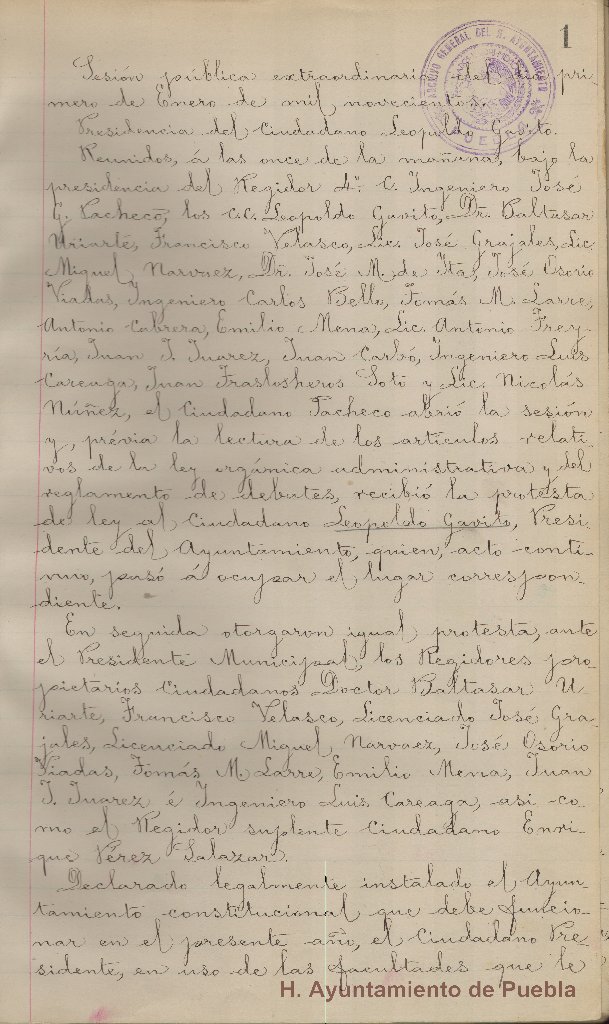 1
ARCHIVO GENERAL DEL H. AYUNTAMIENTO
PUEBLA
Sesión pública extraordinaria del día pri-
mero de Enero de mil novecientos.
Presidencia del Ciudadano Leopoldo Gavito.
Reunidos, á las once de la mañana, bajo la
presidencia del Regidor 4º. C. Ingeniero José
G. Pacheco, los C.C. Leopoldo Gavito, Dr. Baltasar
Uriarte, Francisco Velasco, Lic. José Grajales, Lic.
Miguel Narvaez, Dr. José M. de Ita, José Osorio
Viadas, Ingeniero Carlos Bello, Tomás M. Larre,
Antonio Cabrera, Emilio Mena, Lic. Antonio Frey-
ría, Juan J. Juarez, Juan Carbó, Ingeniero Luis
Careaga, Juan Traslosheros Soto y Lic. Nicolás
Núñez, el Ciudadano Pacheco abrió la sesión
y, prévia la lectura de los artículos relati-
vos de la ley orgánica administrativa y del
reglamento de debates, recibió la protesta
de ley al Ciudadano Leopoldo Gavito, Presi-
dente del Ayuntamiento, quien, acto conti-
nuo, pasó á ocupar el lugar correspon-
diente.
En seguida otorgaron igual protesta, ante
el Presidente Municipal, los Regidores pro-
pietarios Ciudadanos Doctor Baltasar U-
riarte, Francisco Velasco, Licenciado José Gra-
jales, Licenciado Miguel Narvaez, José Osorio
Viadas, Tomás M. Larre, Emilio Mena, Juan
J. Juarez é Ingeniero Luis Careaga, asi co-
mo el Regidor suplente Ciudadano Enri-
que Pérez Salazar.
Declarado legalmente instalado el Ayun-
tamiento constitucional que debe funcio-
nar en el presente año, el Ciudadano Pre-
sidente, en uso de las facultades que le
H. Ayuntamiento de Puebla